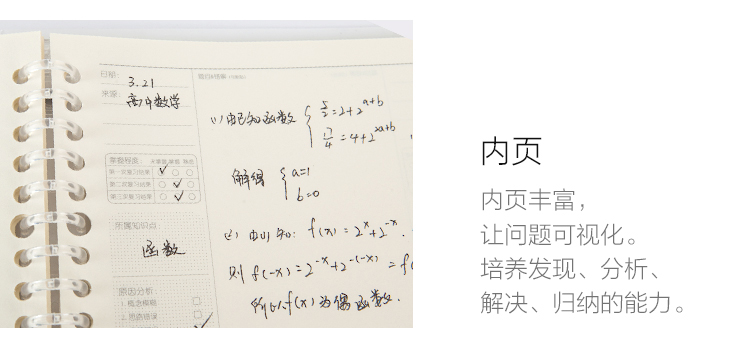 日期:
3.21
来源:
高中数学
掌握程度:
第一次复习结果
第二次复习结果
第三次复习结果
所属知识点:
函数
原因分析:
1. 概念模糊
2. 思路错误
(1) 由已知函数 { 5/2=2+2^(a+b)
17/4=4+2^(2a+b)
解得 { a=1
b=0
(2) 由(1)知: f(x)=2^x+2^-x.
则 f(-x)=2^-x+2^-(-x) = f(
所以f(x)为偶函数.
内页
内页丰富，
让问题可视化。
培养发现、分析、
解决、归纳的能力。